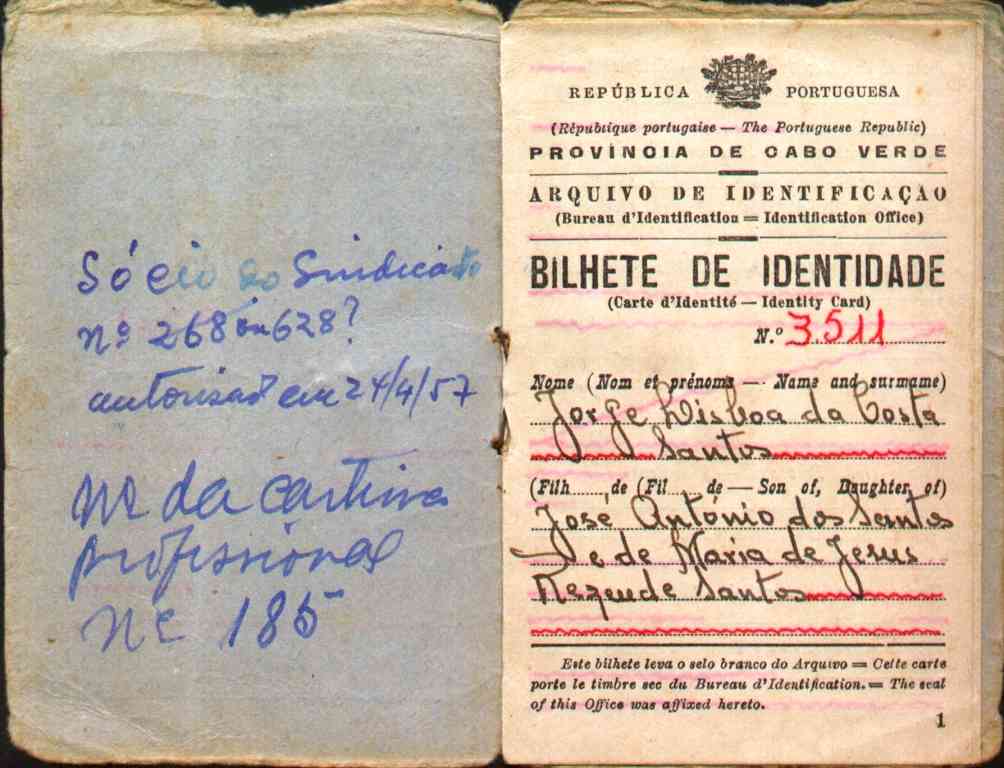 Sócio do Sindicato
nº 268 ou 628?
autorisad em 24/4/57
Nº da carteira
profissional
Nº 185
REPÚBLICA PORTUGUESA
(République portugaise — The Portuguese Republic)
PROVÍNCIA DE CABO VERDE
ARQUIVO DE IDENTIFICAÇÃO
(Bureau d'Identification = Identification Office)
BILHETE DE IDENTIDADE
(Carte d'Identité — Identity Card)
N.º 3.511
Nome (Nom et prénoms — Name and surname)
Jorge Lisboa da Costa
Santos
(Filh......, de (Fil..... de — Son of, Daughter, of)
José António dos Santos
e de Maria de Jesus
Rezende Santos
Este bilhete leva o selo branco do Arquivo = Cette carte
porte le timbre sec du Bureau d'Identification. = The seal
of this Office was affixed hereto.
1